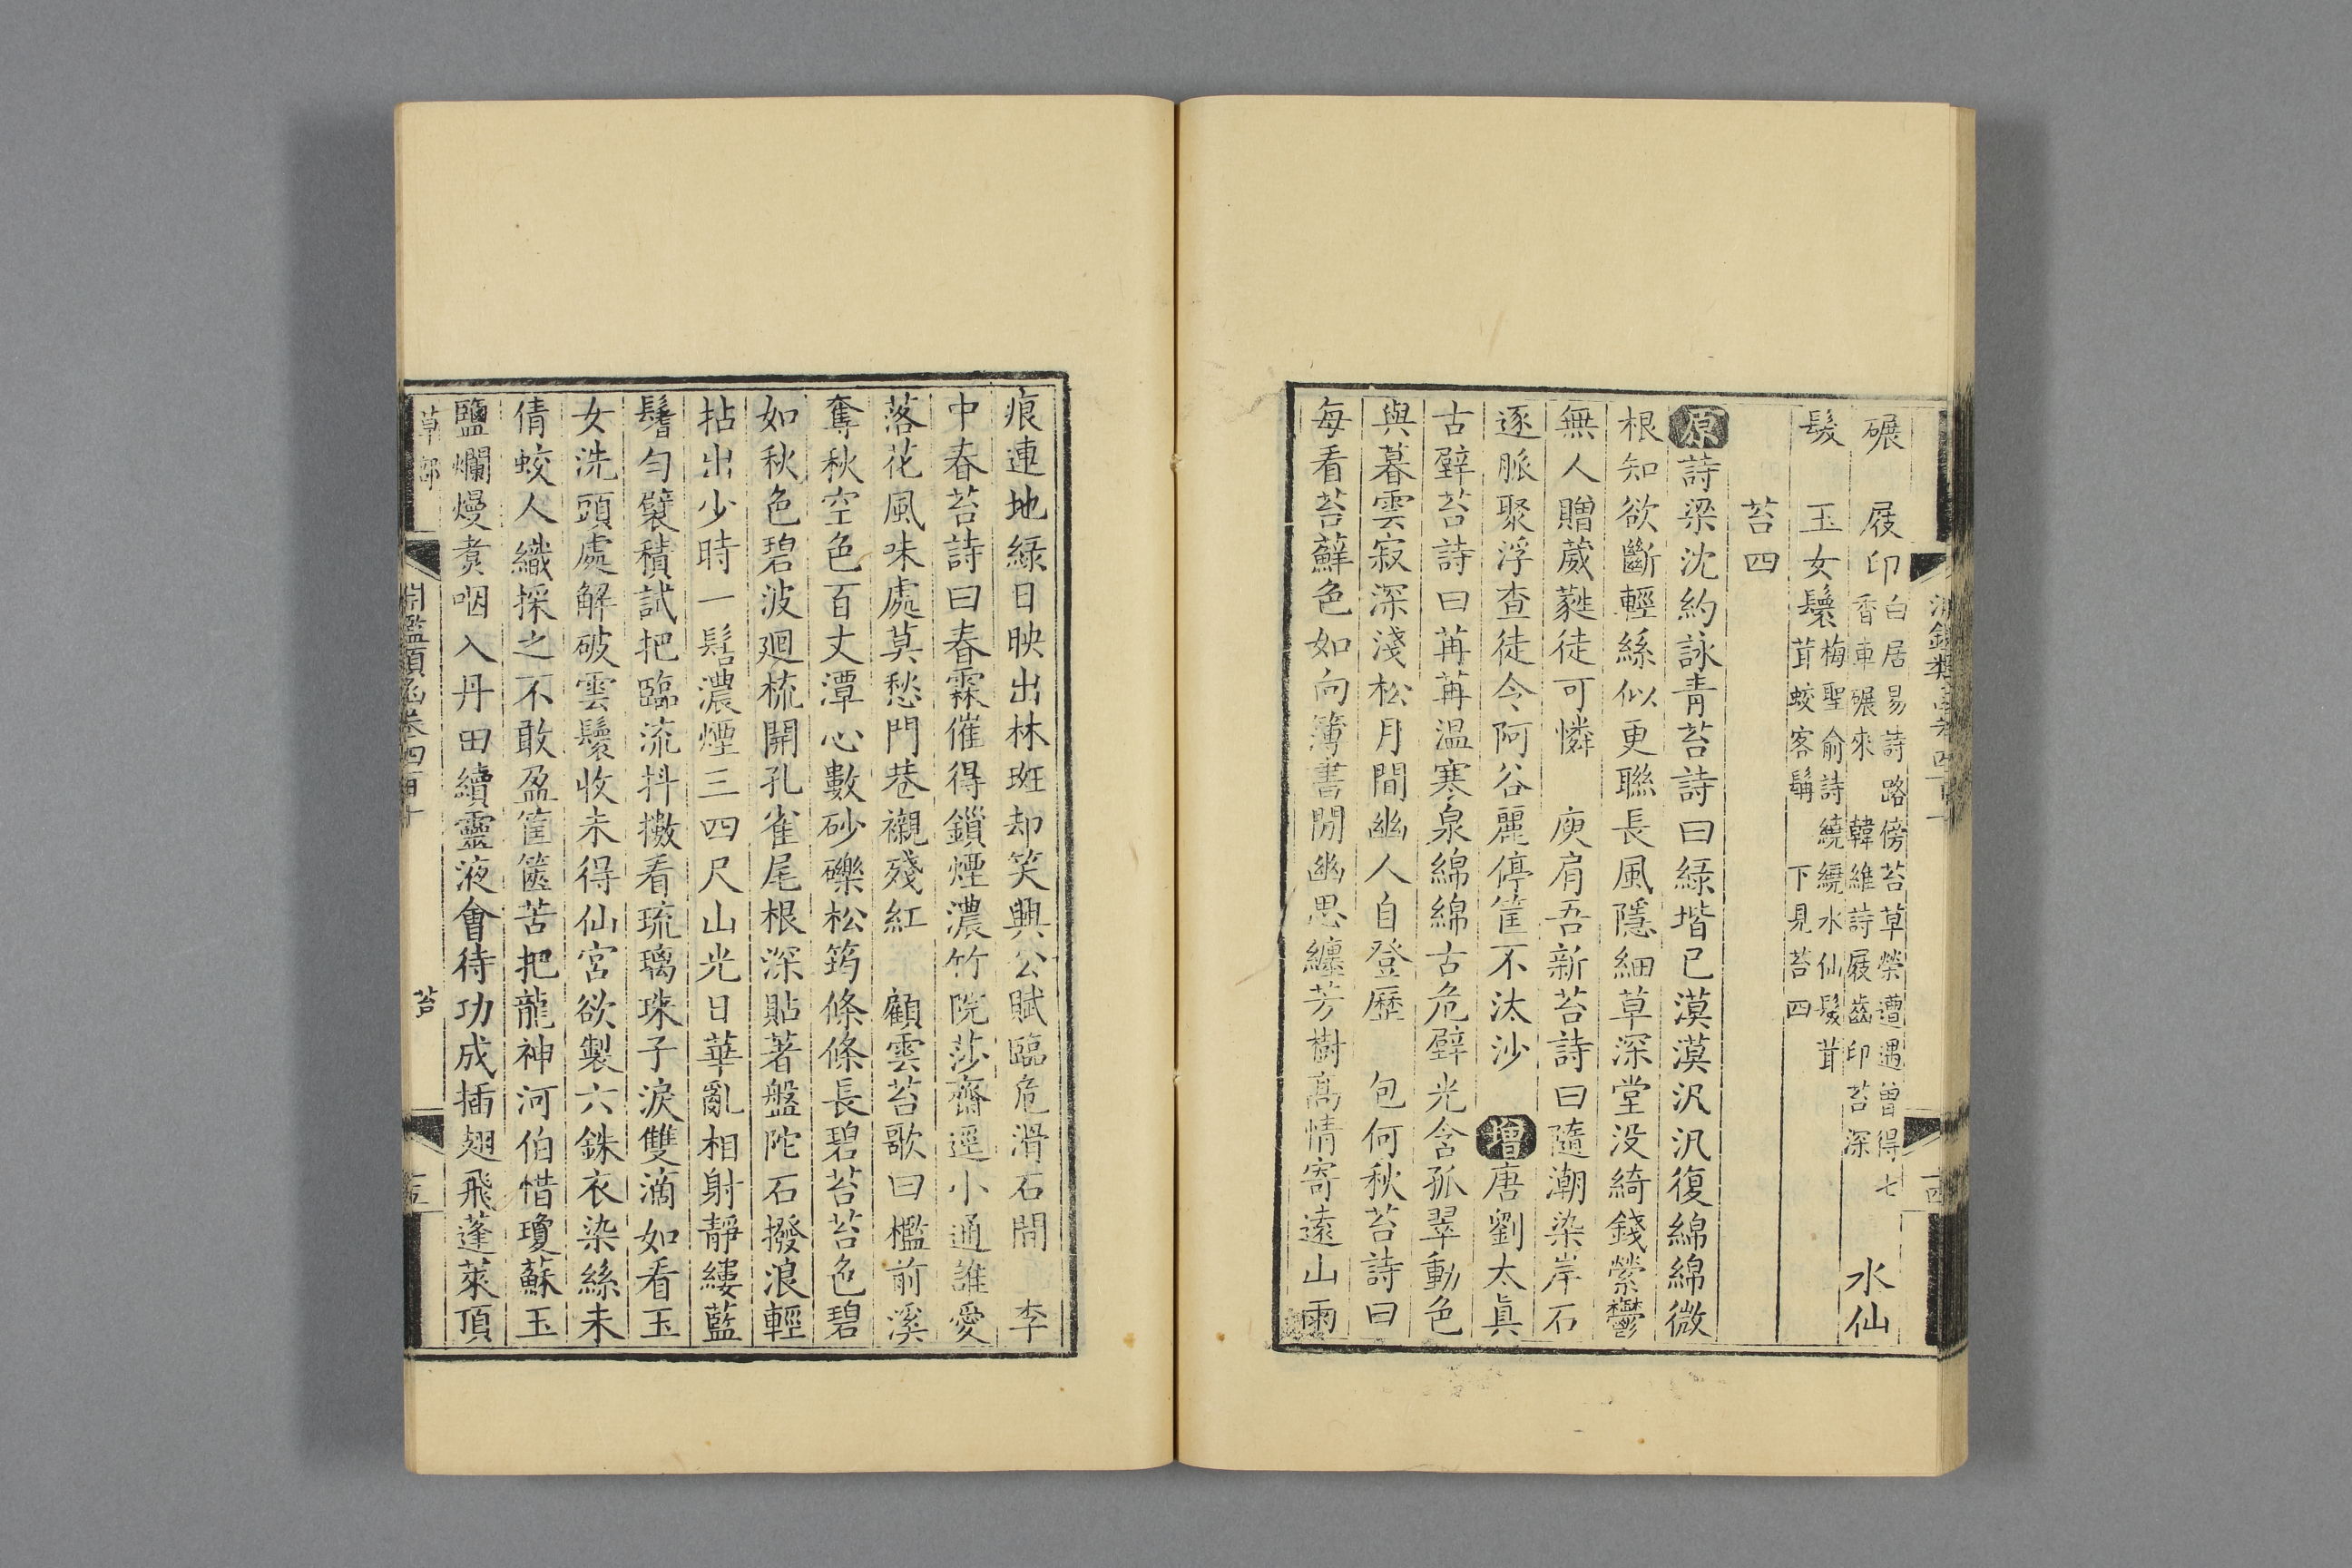 碾　屐印白居易詩路傍苔草榮遭遇曾得七香車碾來　韓維詩屐齒印苔深　水仙
髮　玉女鬟梅聖俞詩繞繞水仙髮茸茸蛟客鬋　下見苔四
苔四
原詩梁沈約詠青苔詩曰綠堦已漠漠汎汎復綿綿微
根知欲斷輕絲似更聯長風隱細草深堂没綺錢縈鬱
無人贈葳蕤徒可憐　庾肩吾新苔詩曰隨潮染岸石
逐脈聚浮查徒令阿谷麗停筐不汰沙　增唐劉太眞
古壁苔詩曰苒苒温寒泉綿綿古危壁光含孤翠動色
與暮雲寂深淺松月間幽人自登歷　包何秋苔詩曰
每看苔蘚色如向簿書閒幽思纏芳樹高情寄遠山雨
痕連地綠日映出林斑却笑興公賦臨危滑石間　李
中春苔詩曰春霖催得鎖煙濃竹院莎齋逕小通誰愛
落花風味處莫愁門巷襯殘紅　顧雲苔歌曰檻前溪
奪秋空色百丈潭心數砂礫松筠條條長碧苔苔色碧
如秋色碧波廻梳開孔雀尾根深貼著盤陀石撥浪輕
拈出少時一髻濃煙三四尺山光日華亂相射靜縷藍
鬐勻襞積試把臨流抖擻看琉璃珠子淚雙滴如看玉
女洗頭處解破雲鬟收未得仙宮欲製六銖衣染絲未
倩蛟人織採之不敢盈筐篋苦把龍神河伯惜瓊蘇玉
鹽爛熳煑咽入丹田續靈液會待功成插翅飛蓬萊頂
草部　淵鑑類函卷四百十　苔